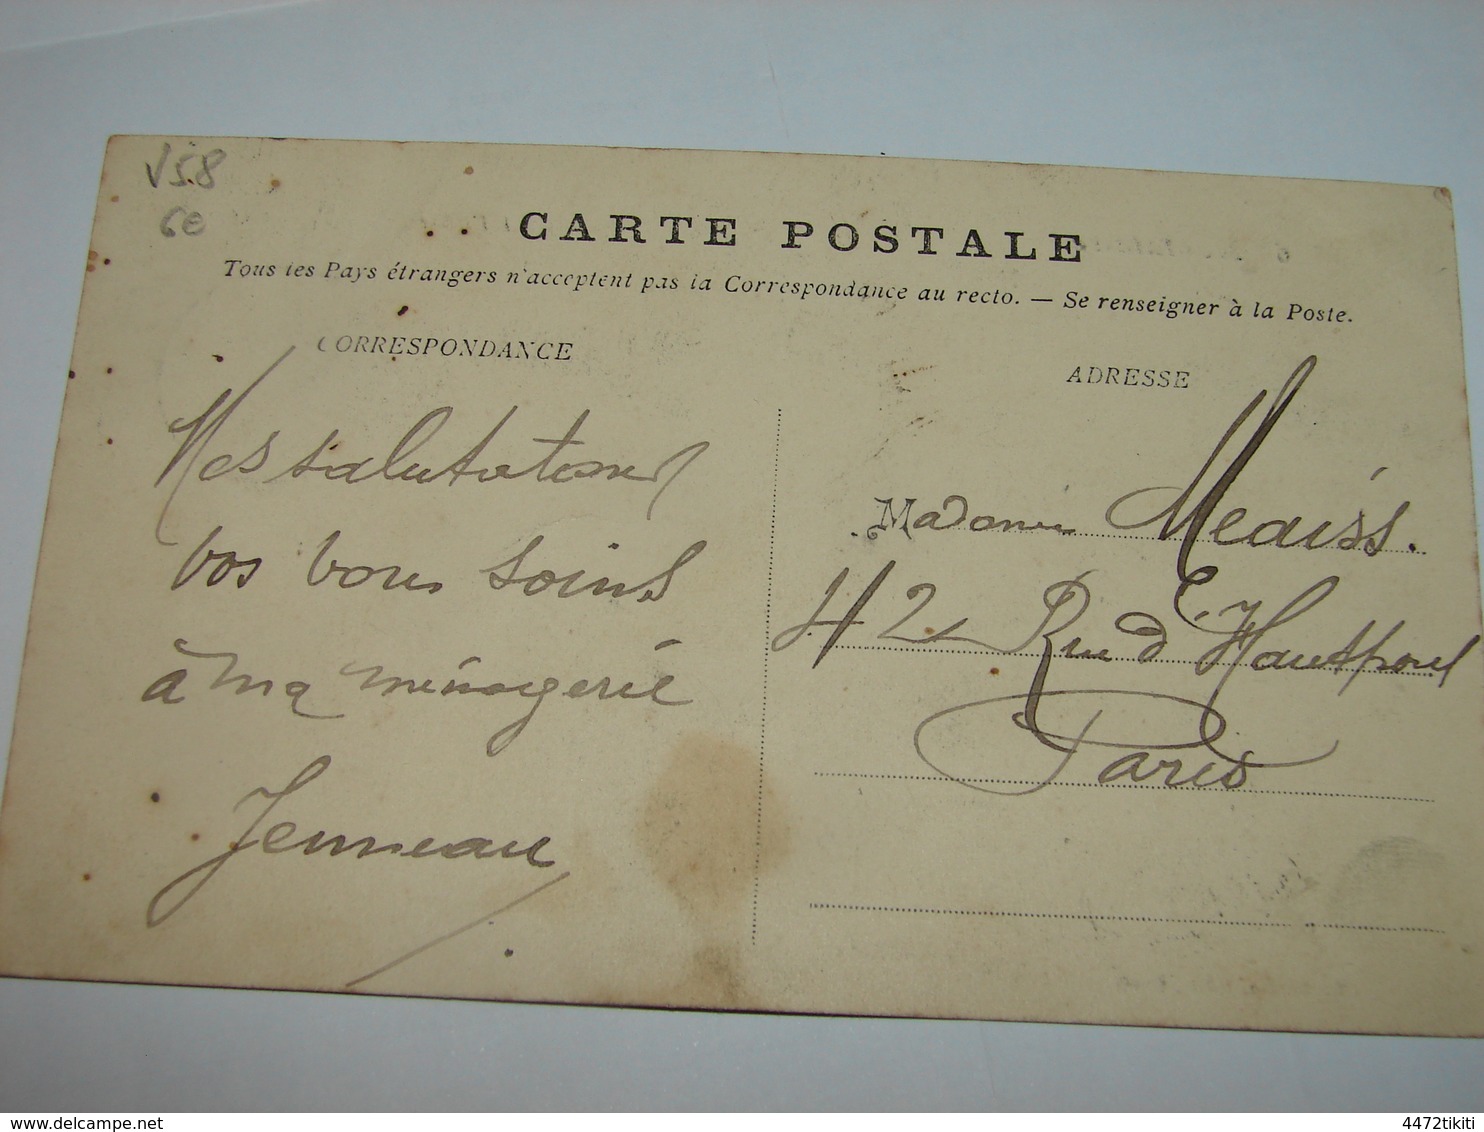 V58
6e
CARTE POSTALE
Tous les Pays étrangers n'acceptent pas la Correspondance au recto. — Se renseigner à la Poste.
CORRESPONDANCE
ADRESSE
Mes salutations
vos bons soins
à ma ménagerie
Jenneau
Madame Meaiss.
42 Rue d'Hautpoul
Paris
delcampe.net
4472tikiti